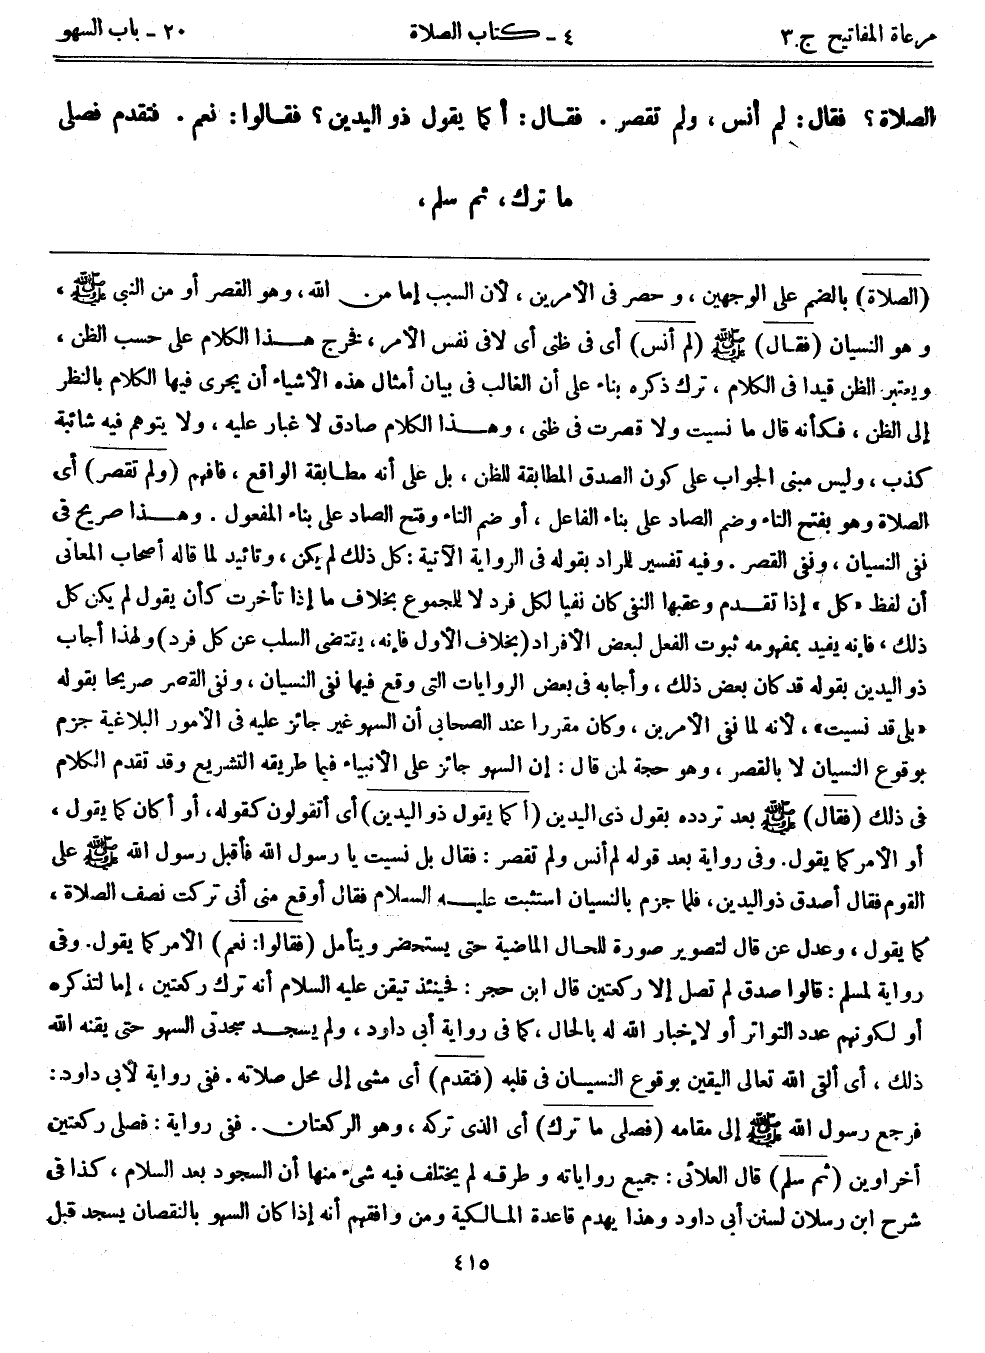 مرعاة المفاتيح ج ٣ ٤ - كتاب الصلاة ٢٠ - باب السهو
الصلاة؟ فقال: لم أنس، ولم تقصر. فقال: أكما يقول ذو اليدين؟ فقالوا: نعم. فتقدم فصلى
ما ترك، ثم سلم،
(الصلاة) بالضم على الوجهين، و حصر فى الأمرين، لأن السبب إما من الله، وهو القصر أو من النبي ﷺ،
و هو النسيان (فقال) ﷺ (لم أنس) أى فى ظنى أى لافى نفس الأمر، فخرج هذا الكلام على حسب الظن،
ويعتبر الظن قيدا فى الكلام، ترك ذكره بناء على أن الغالب فى بيان أمثال هذه الأشياء أن يجرى فيها الكلام بالنظر
إلى الظن، فكأنه قال ما نسيت ولا قصرت فى ظنى، وهذا الكلام صادق لا غبار عليه، ولا يتوهم فيه شائبة
كذب، وليس مبنى الجواب على كون الصدق المطابقة للظن، بل على أنه مطابقة الواقع، فافهم (ولم تقصر) أى
الصلاة وهو بفتح التاء وضم الصاد على بناء الفاعل، أو ضم التاء وفتح الصاد على بناء المفعول. وهذا صريح فى
نفى النسيان، ونفى القصر. وفيه تفسير للراد بقوله فى الرواية الآتية: كل ذلك لم يكن، وتائيد لما قاله أصحاب المعانى
أن لفظ «كل» إذا تقدم وعقبها النفى كان نفيا لكل فرد لا للجموع بخلاف ما إذا تأخرت كأن يقول لم يكن كل
ذلك، فإنه يفيد بمفهومه ثبوت الفعل لبعض الأفراد (بخلاف الأول فإنه، يقتضى السلب عن كل فرد) ولهذا أجاب
ذو اليدين بقوله قد كان بعض ذلك، وأجابه فى بعض الروايات التى وقع فيها نفى النسيان، ونفى القصر صريحا بقوله
«بلى قد نسيت»، لأنه لما نفى الأمرين، وكان مقررا عند الصحابى أن السهو غير جائز عليه فى الأمور البلاغية جزم
بوقوع النسيان لا بالقصر، وهو حجة لمن قال: إن السهو جائز على الأنبياء فيما طريقه التشريع وقد تقدم الكلام
فى ذلك (فقال) ﷺ بعد تردده بقول ذى اليدين (أكما يقول ذو اليدين) أى أتقولون كقوله، أو أكان كما يقول،
أو الأمر كما يقول. وفى رواية بعد قوله لم أنس ولم تقصر: فقال بل نسيت يا رسول الله فأقبل رسول الله ﷺ على
القوم فقال أصدق ذو اليدين، فلما جزم بالنسيان استثبت عليه السلام فقال أوقع منى أنى تركت نصف الصلاة،
كما يقول، وعدل عن قال لتصوير صورة للحال الماضية حتى يستحضر ويتأمل (فقالوا: نعم) الأمر كما يقول. وفى
رواية لمسلم: قالوا صدق لم تصل إلا ركعتين قال ابن حجر: فحينئذ تيقن عليه السلام أنه ترك ركعتين، إما لتذكره
أو لكونهم عدد التواتر أو لإخبار الله له بالحال، كما فى رواية أبي داود، ولم يسجد سجدتى السهو حتى يقنه الله
ذلك، أى ألقى الله تعالى اليقين بوقوع النسيان فى قلبه (فتقدم) أى مشى إلى محل صلاته. ففى رواية لأبي داود:
فرجع رسول الله ﷺ إلى مقامه (فصلى ما ترك) أى الذى تركه، وهو الركعتان. ففى رواية: فصلى ركعتين
أخراوين (ثم سلم) قال العلائى: جميع رواياته و طرقه لم يختلف فيه شىء منها أن السجود بعد السلام، كذا فى
شرح ابن رسلان لسنن أبي داود وهذا يهدم قاعدة المالكية ومن وافقهم أنه إذا كان السهو بالنقصان يسجد قبل
٤١٥